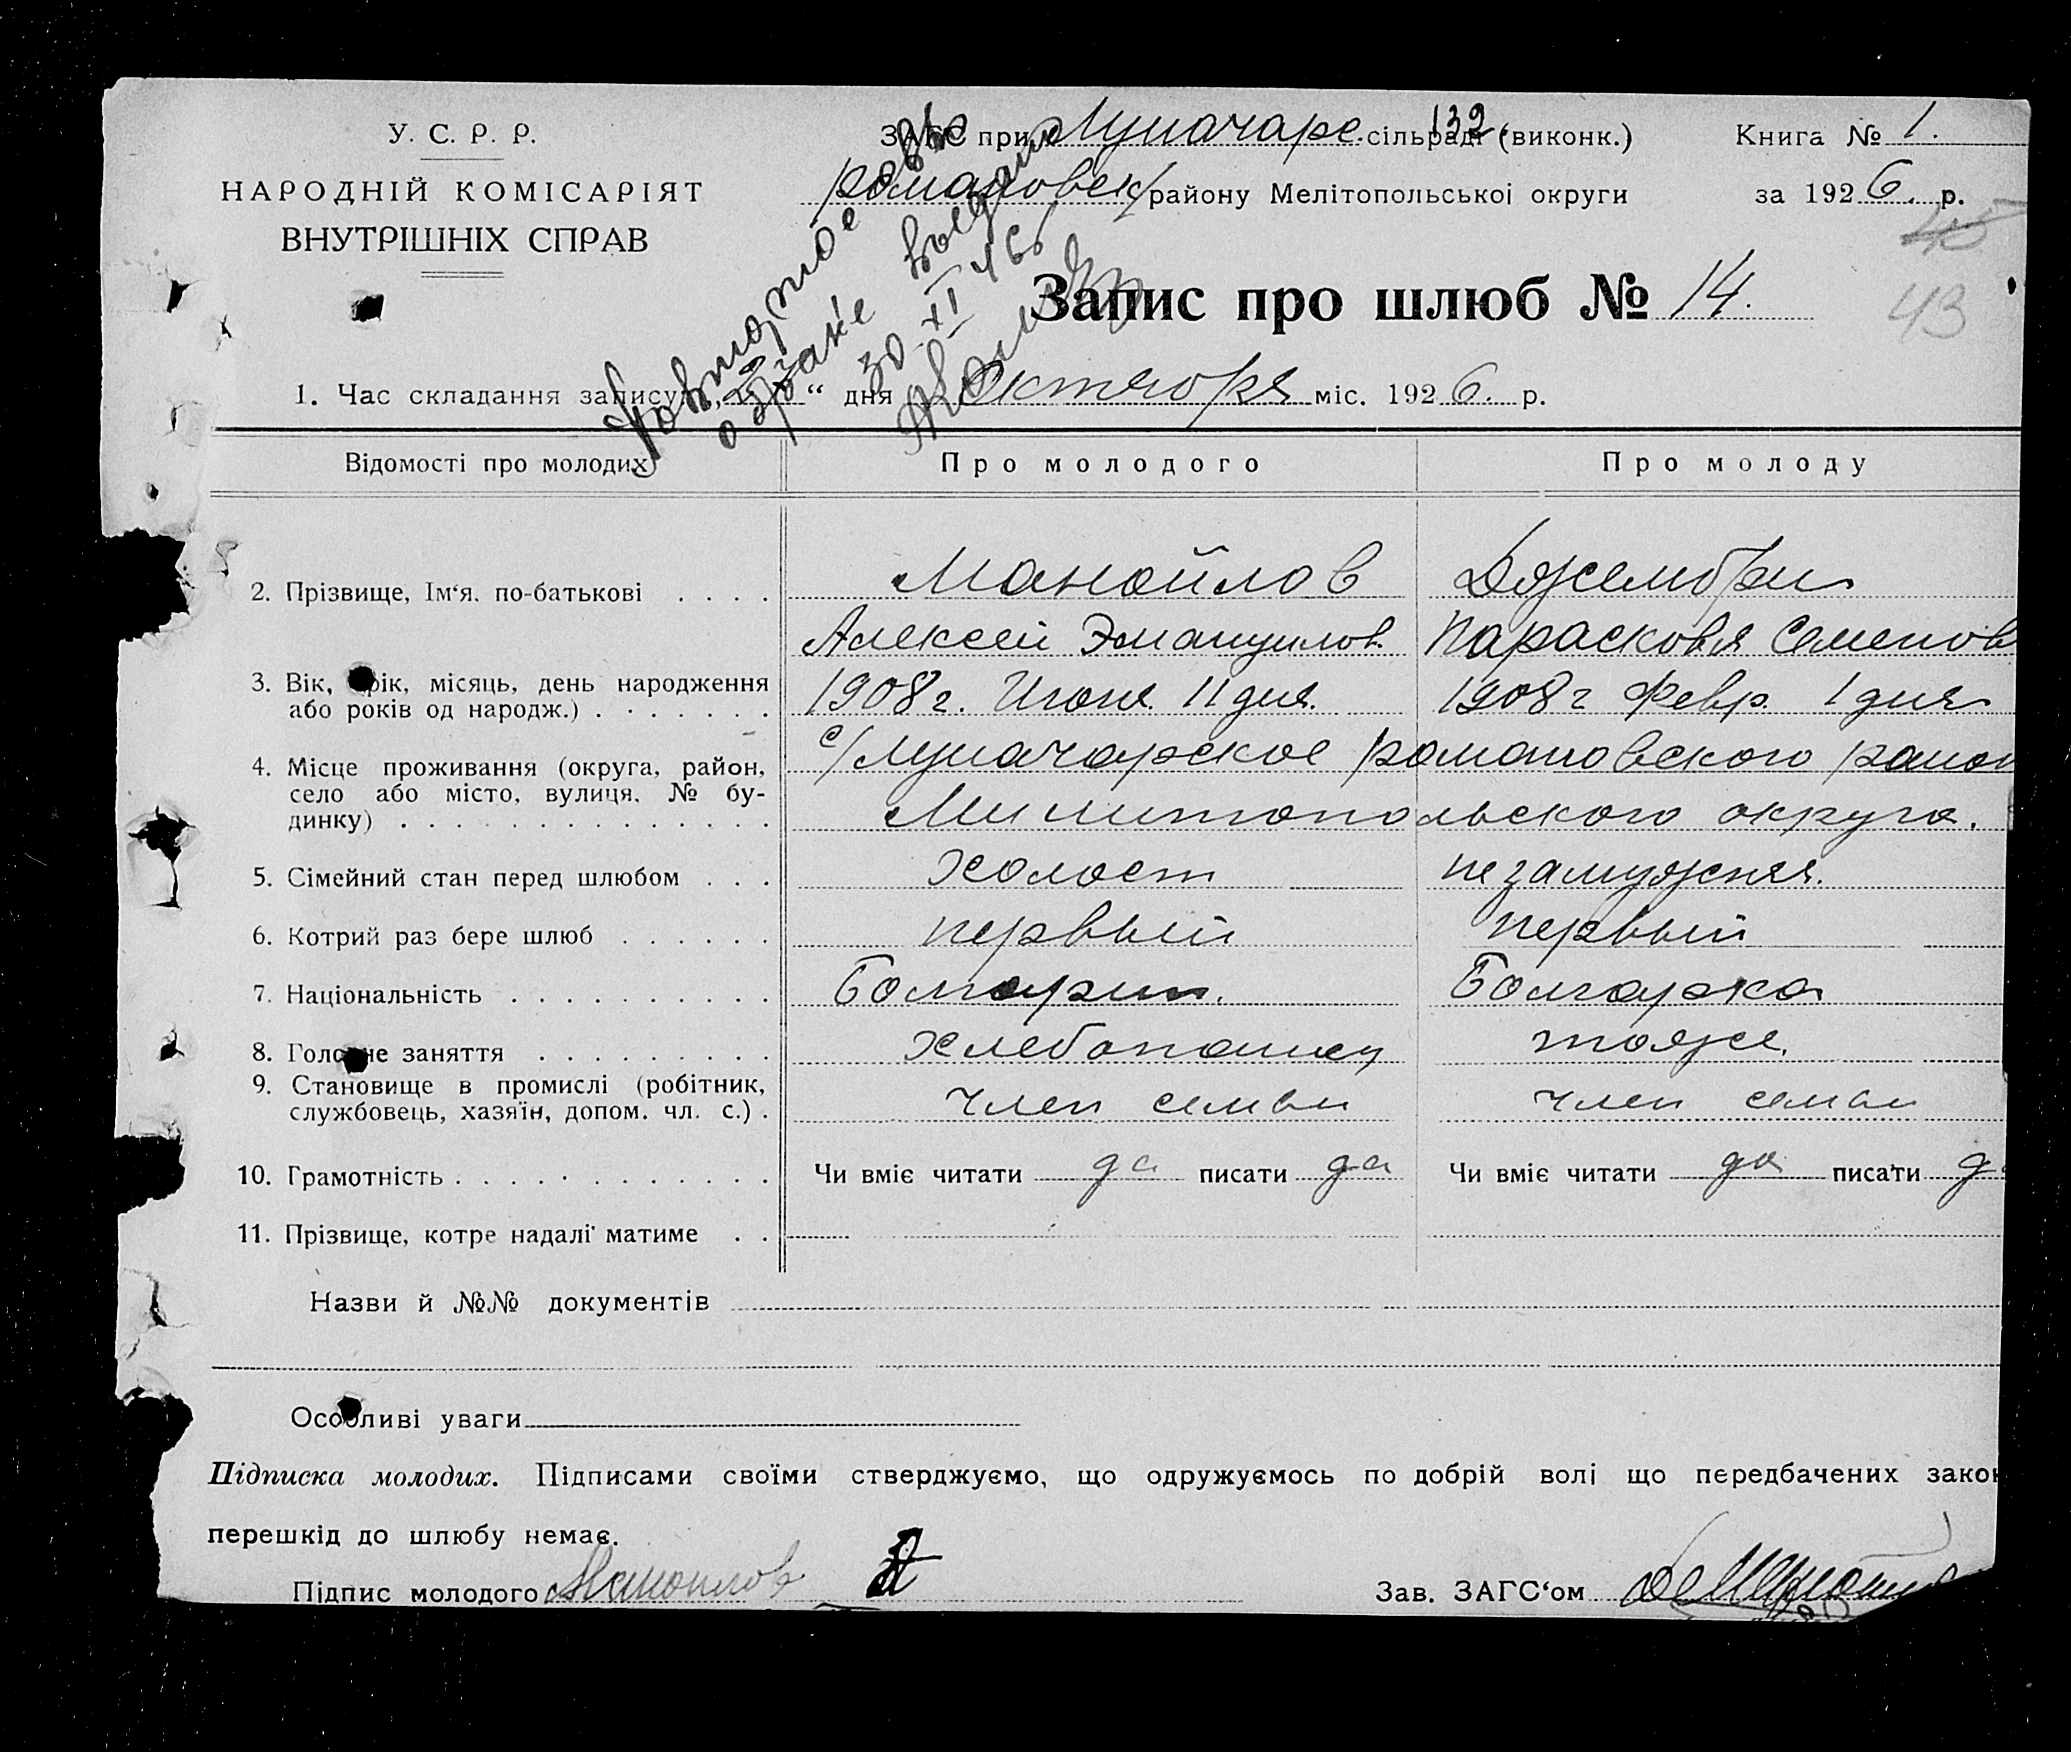 У. С. Р. Р.
НАРОДНІЙ КОМІСАРІЯТ
ВНУТРІШНІХ СПРАВ
ЗАГС при Луначарс. сільраді (виконк.)
132
Романовск. району Мелітопольської округи
Книга № 1.
за 1926. р.
43
Повторное св-во
о браке выдано
30 XI 46
Запис про шлюб № 14.
1. Час складання запису „ “ дня Октября міс. 1926. р.
Відомості про молодих
Про молодого
Про молоду
2. Прізвище, Ім‘я, по-батькові . . . .
Манойлов
Алексей Эмануилов.
Джембри
Парасковья Семенов
3. Вік, (рік, місяць, день народження
або років од народж.) . . . . . . .
1908 г. Июня 11 дня.
1908 г Февр. 1 дня
4. Місце проживання (округа, район,
село або місто, вулиця, № бу-
динку) . . . . . . . . . . . . . .
с/Луначарское Романовского район
Милитопольского округа.
5. Сімейний стан перед шлюбом . . .
холост
незамужняя.
6. Котрий раз бере шлюб . . . . . .
первый
первый
7. Національність . . . . . . . . . .
Болгарин.
Болгарка
8. Головне заняття . . . . . . . . .
хлебопашец
тоже.
9. Становище в промислі (робітник,
службовець, хазяїн, допом. чл. с.) .
член семьи
член семьи
10. Грамотність . . . . . . . . . . . .
Чи вміє читати да писати да
Чи вміє читати да писати да
11. Прізвище, котре надалі матиме . .
Назви й №№ документів
Особливі уваги
Підписка молодих. Підписами своїми стверджуємо, що одружуємось по добрій волі що передбачених закон
перешкід до шлюбу немає.
Підпис молодого Манойлов
Зав. ЗАГС‘ом